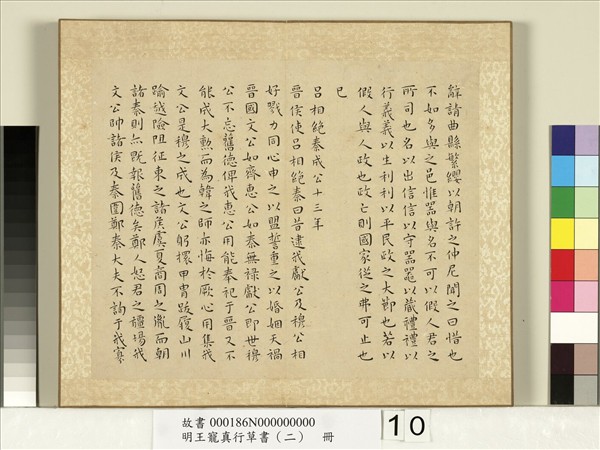 辭請曲縣繁纓以朝許之仲尼聞之曰惜也
不如多與之邑惟器與名不可以假人君之
所司也名以出信信以守器器以藏禮禮以
行義義以生利利以平民政之大節也若以
假人與人政也政亡則國家從之弗可止也
已
呂相絕秦成公十三年
晉侯使呂相絕秦曰昔逮我獻公及穆公相
好戮力同心申之以盟誓重之以婚姻天禍
晉國文公如齊惠公如秦無祿獻公即世穆
公不忘舊德俾我惠公用能奉祀于晉又不
能成大勲而為韓之師亦悔於厥心用集我
文公是穆之成也文公躬擐甲冑跋履山川
踰越險阻征東之諸侯虞夏商周之胤而朝
諸秦則亦既報舊德矣鄭人怒君之疆埸我
文公帥諸侯及秦圍鄭秦大夫不詢于我寡
故書 000186N000000000
明王寵真行草書（二） 冊
10